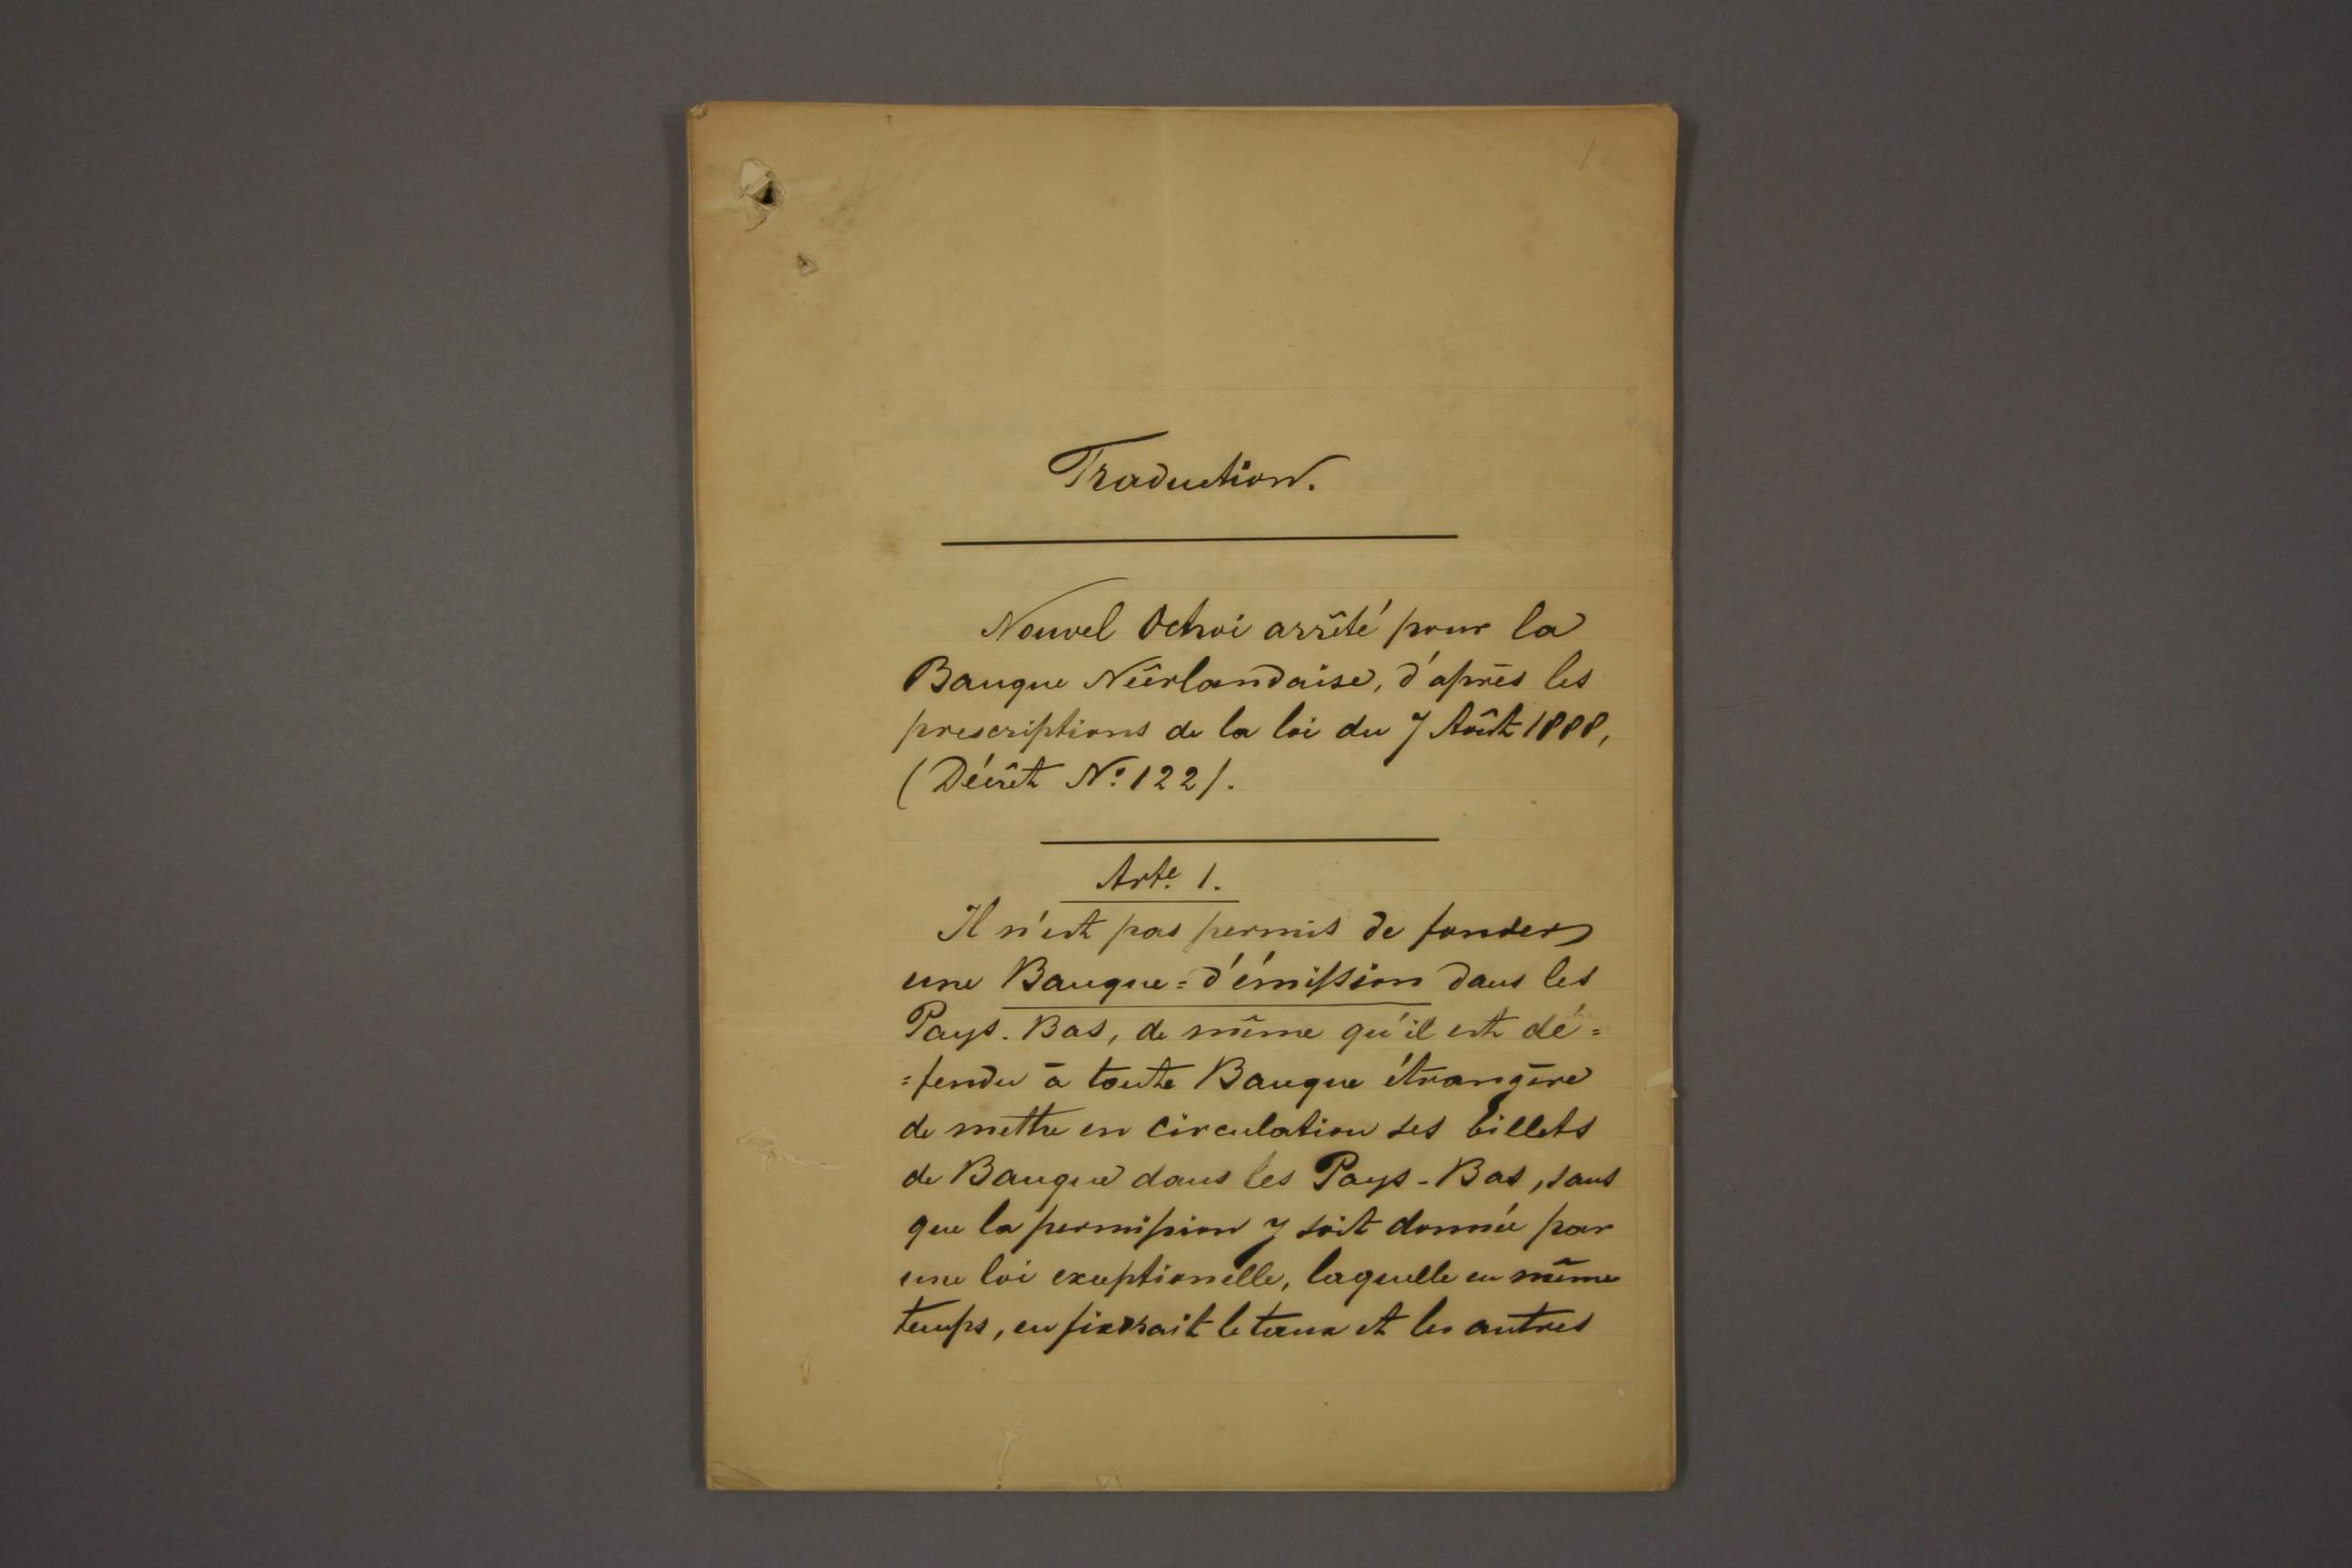 1
Traduction.
Nouvel Octroi arrêté pour la
Banque Néêrlandaise, d'après les
prescriptions de la loi du 7 Août 1888,
(Décrêt Nº 122).
Arte. 1.
Il n'est pas permis de fonder
une Banque=d'émission dans les
Pays-Bas, de même qu'il est dé=
=fendu à toute Banque étrangère
de mettre en circulation ses billets
de Banque dans les Pays-Bas, sans
que la permission y soit donnée par
une loi exceptionelle, laquelle en même
temps, en fixerait le taux et les autres